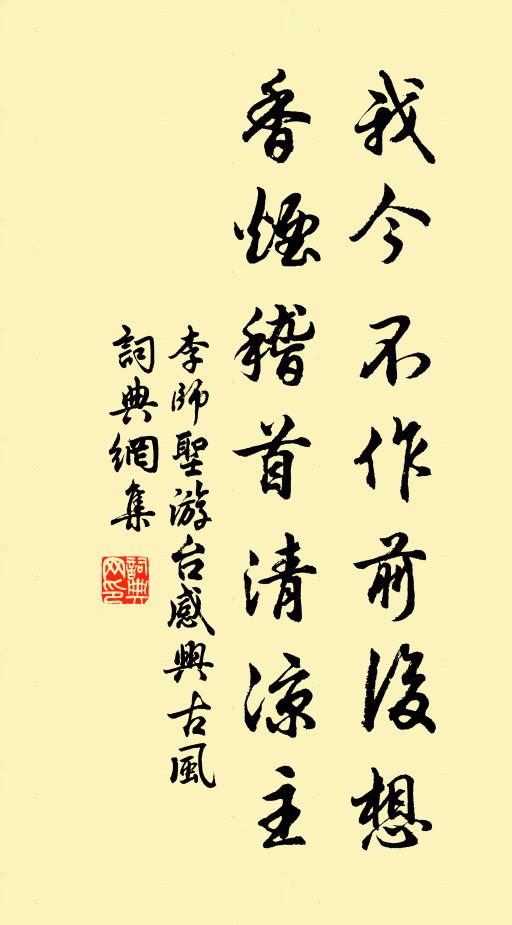 我今不作前後想
香煙稽首清凉主
李師聖游台感興古風
詞典網集
詞典網印